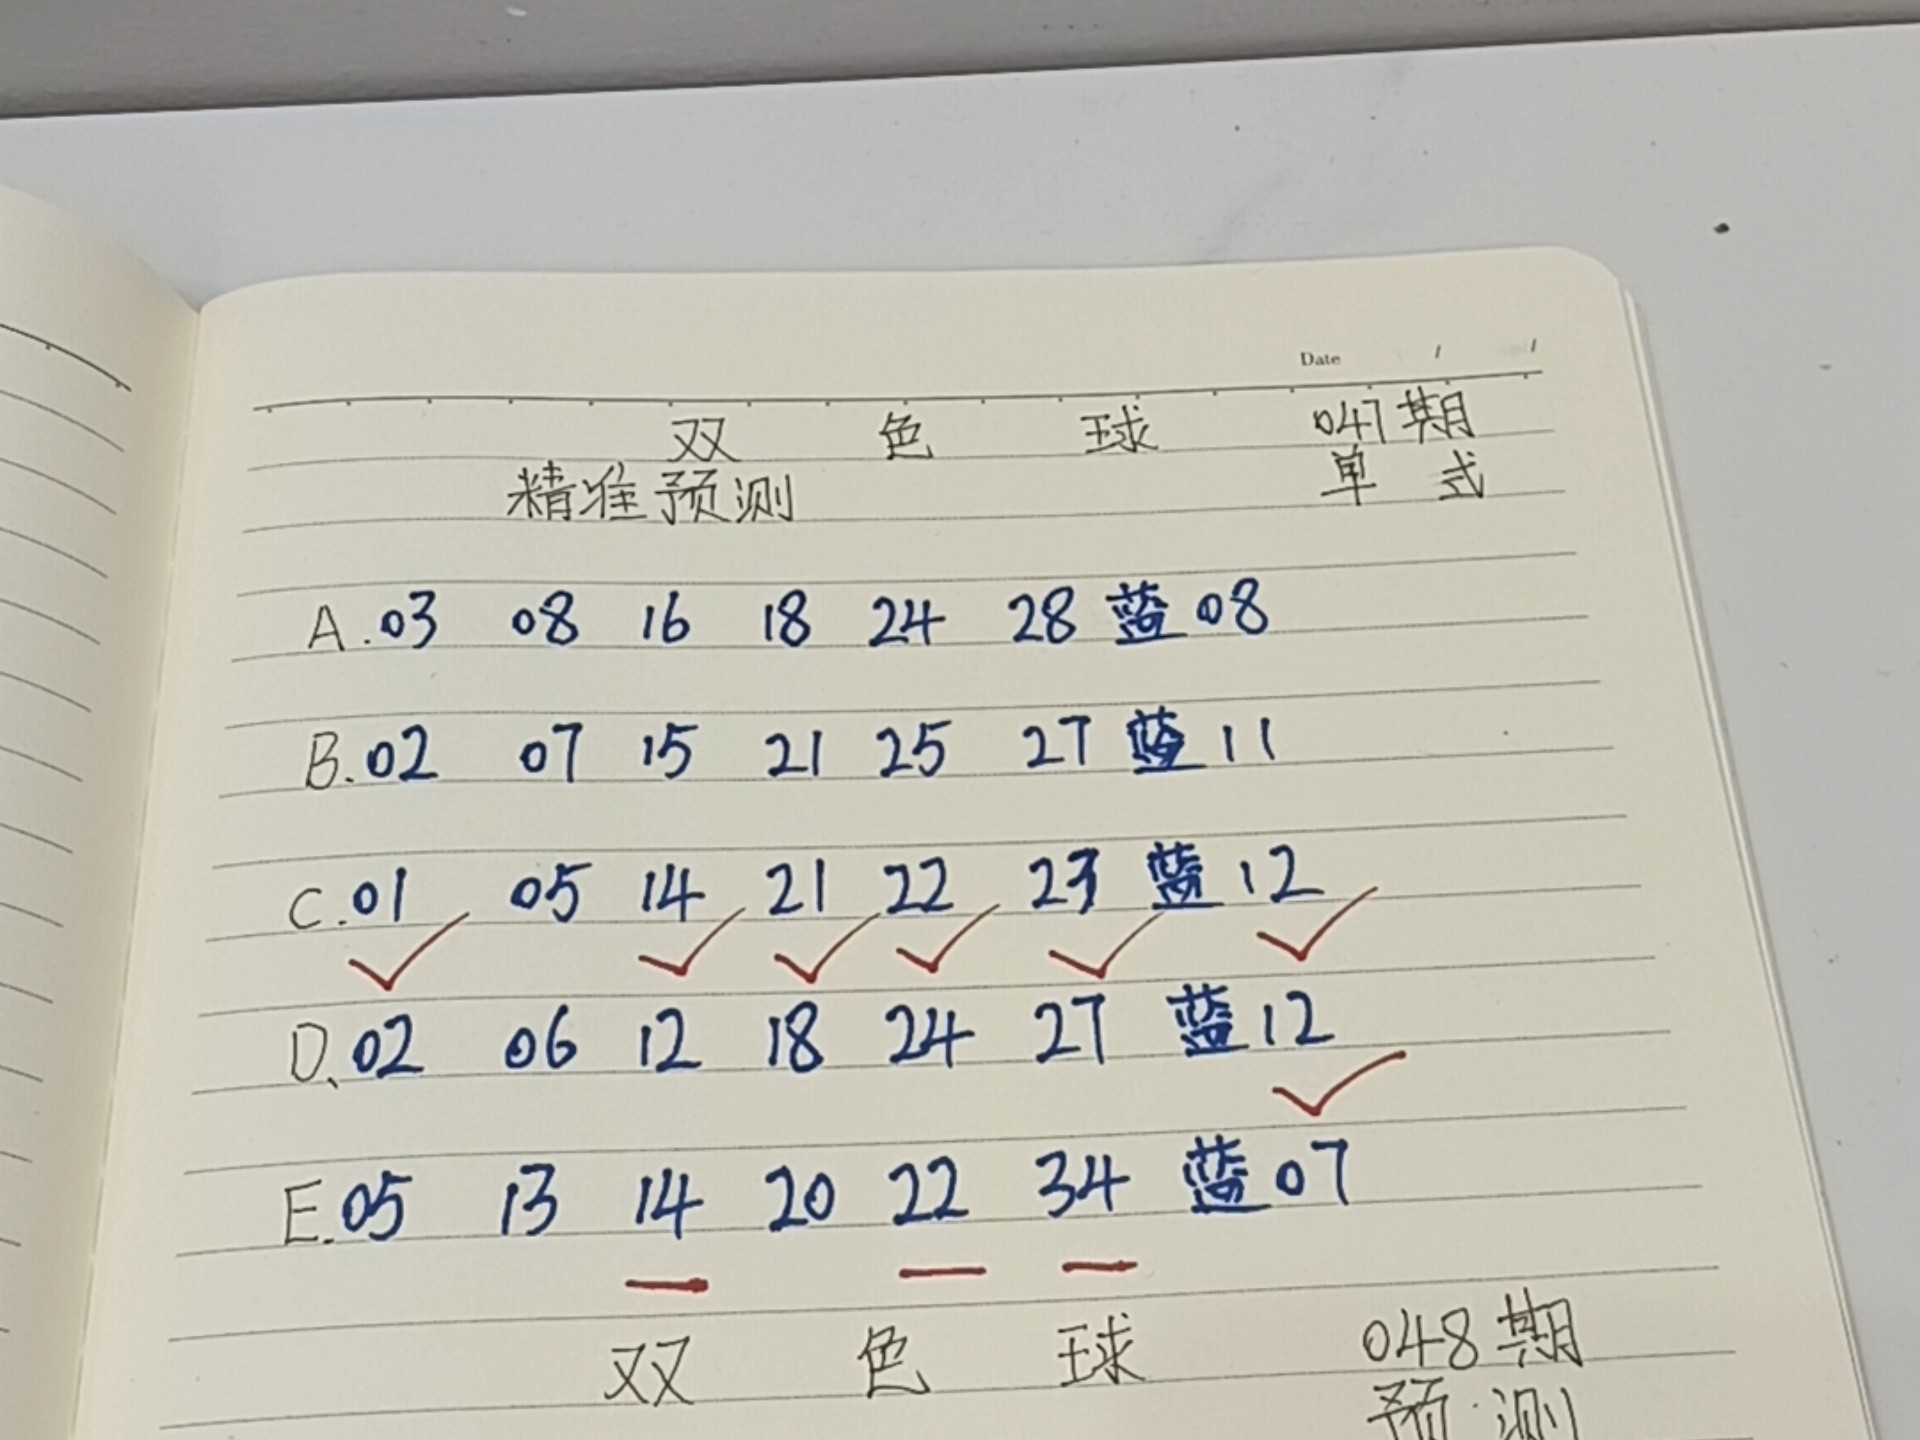 Date / /
双 色 球 047期
精准预测 单 式
A.03 08 16 18 24 28 蓝 08
B.02 07 15 21 25 27 蓝 11
C.01 05 14 21 22 23 蓝 12
D、02 06 12 18 24 27 蓝 12
E.05 13 14 20 22 34 蓝 07
双 色 球 048期
预测